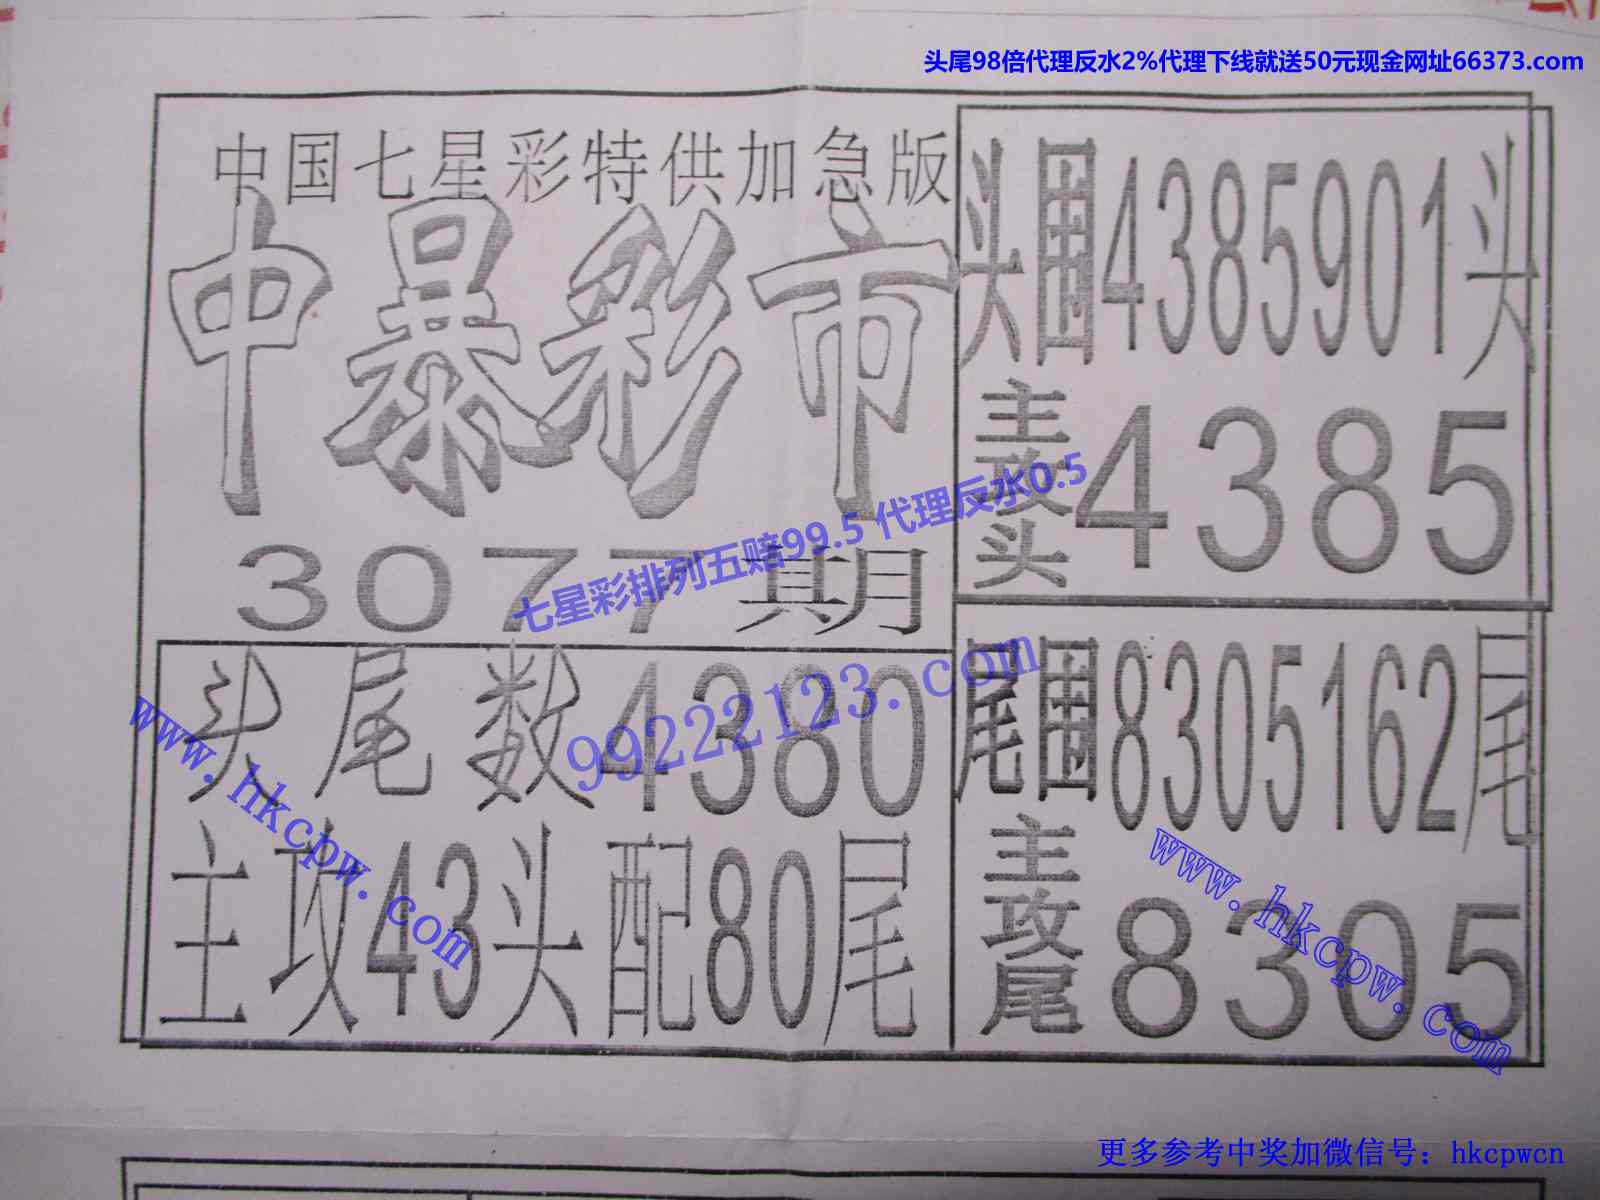 头尾98倍代理反水2%代理下线就送50元现金网址66373.com
中国七星彩特供加急版
中暴彩市
3077期
七星彩排列五赔99.5 代理反水0.5
99222123.com
头围4385901头
主攻头4385
头尾数4380
主攻43头配80尾
www.hkcpw.com
尾围8305162尾
主攻尾8305
www.hkcpw.com
更多参考中奖加微信号：hkcpwcn